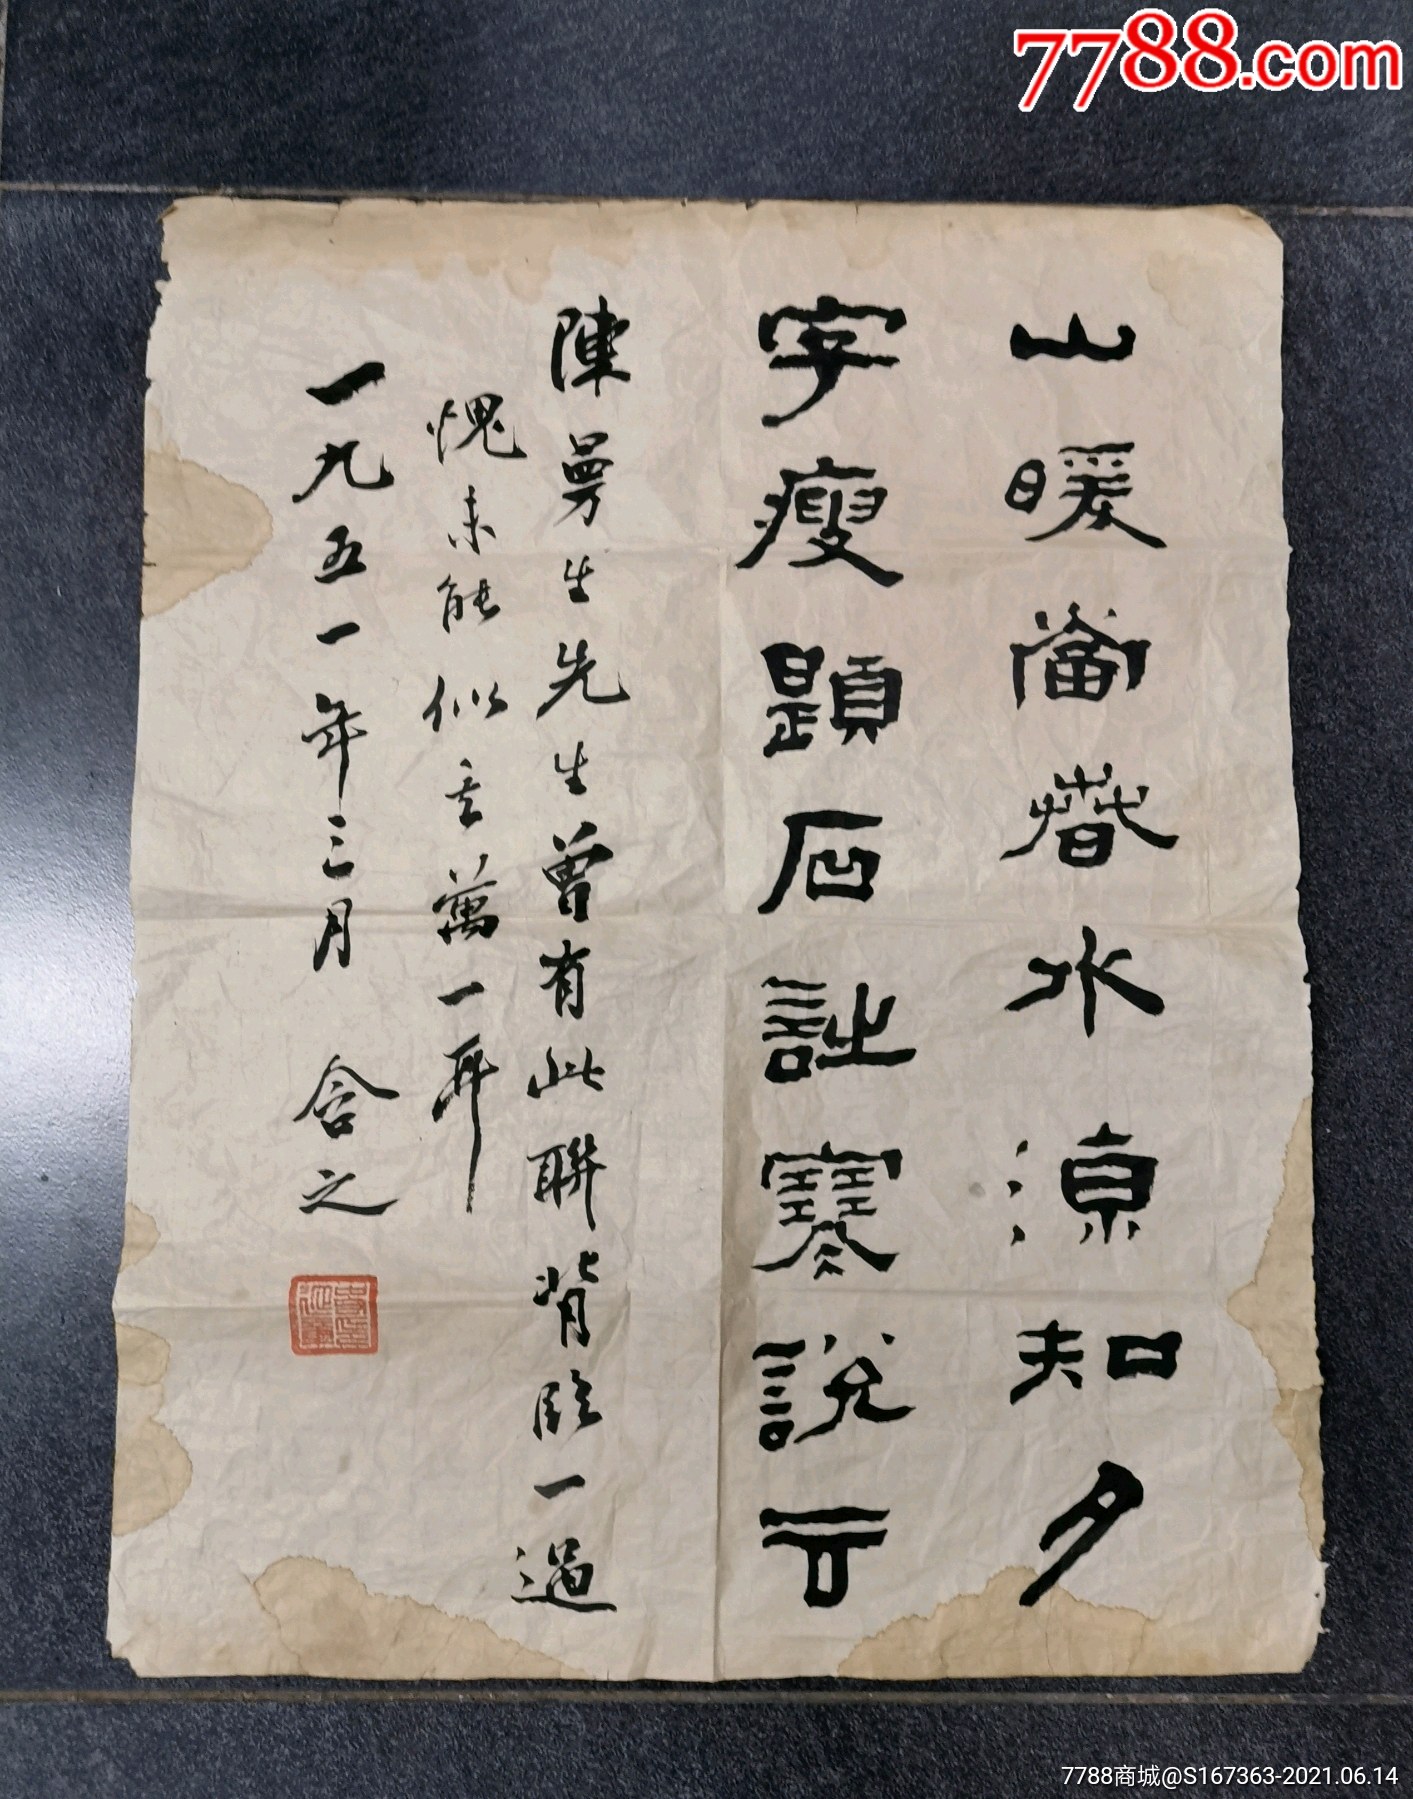 山暖當春水涼知夕
字瘦題石詩寒說
陳曼生先生曾有此聯背臨一過
愧未能似其萬一耳
一九五一年三月 含之
7788.com
7788商城@S167363-2021.06.14